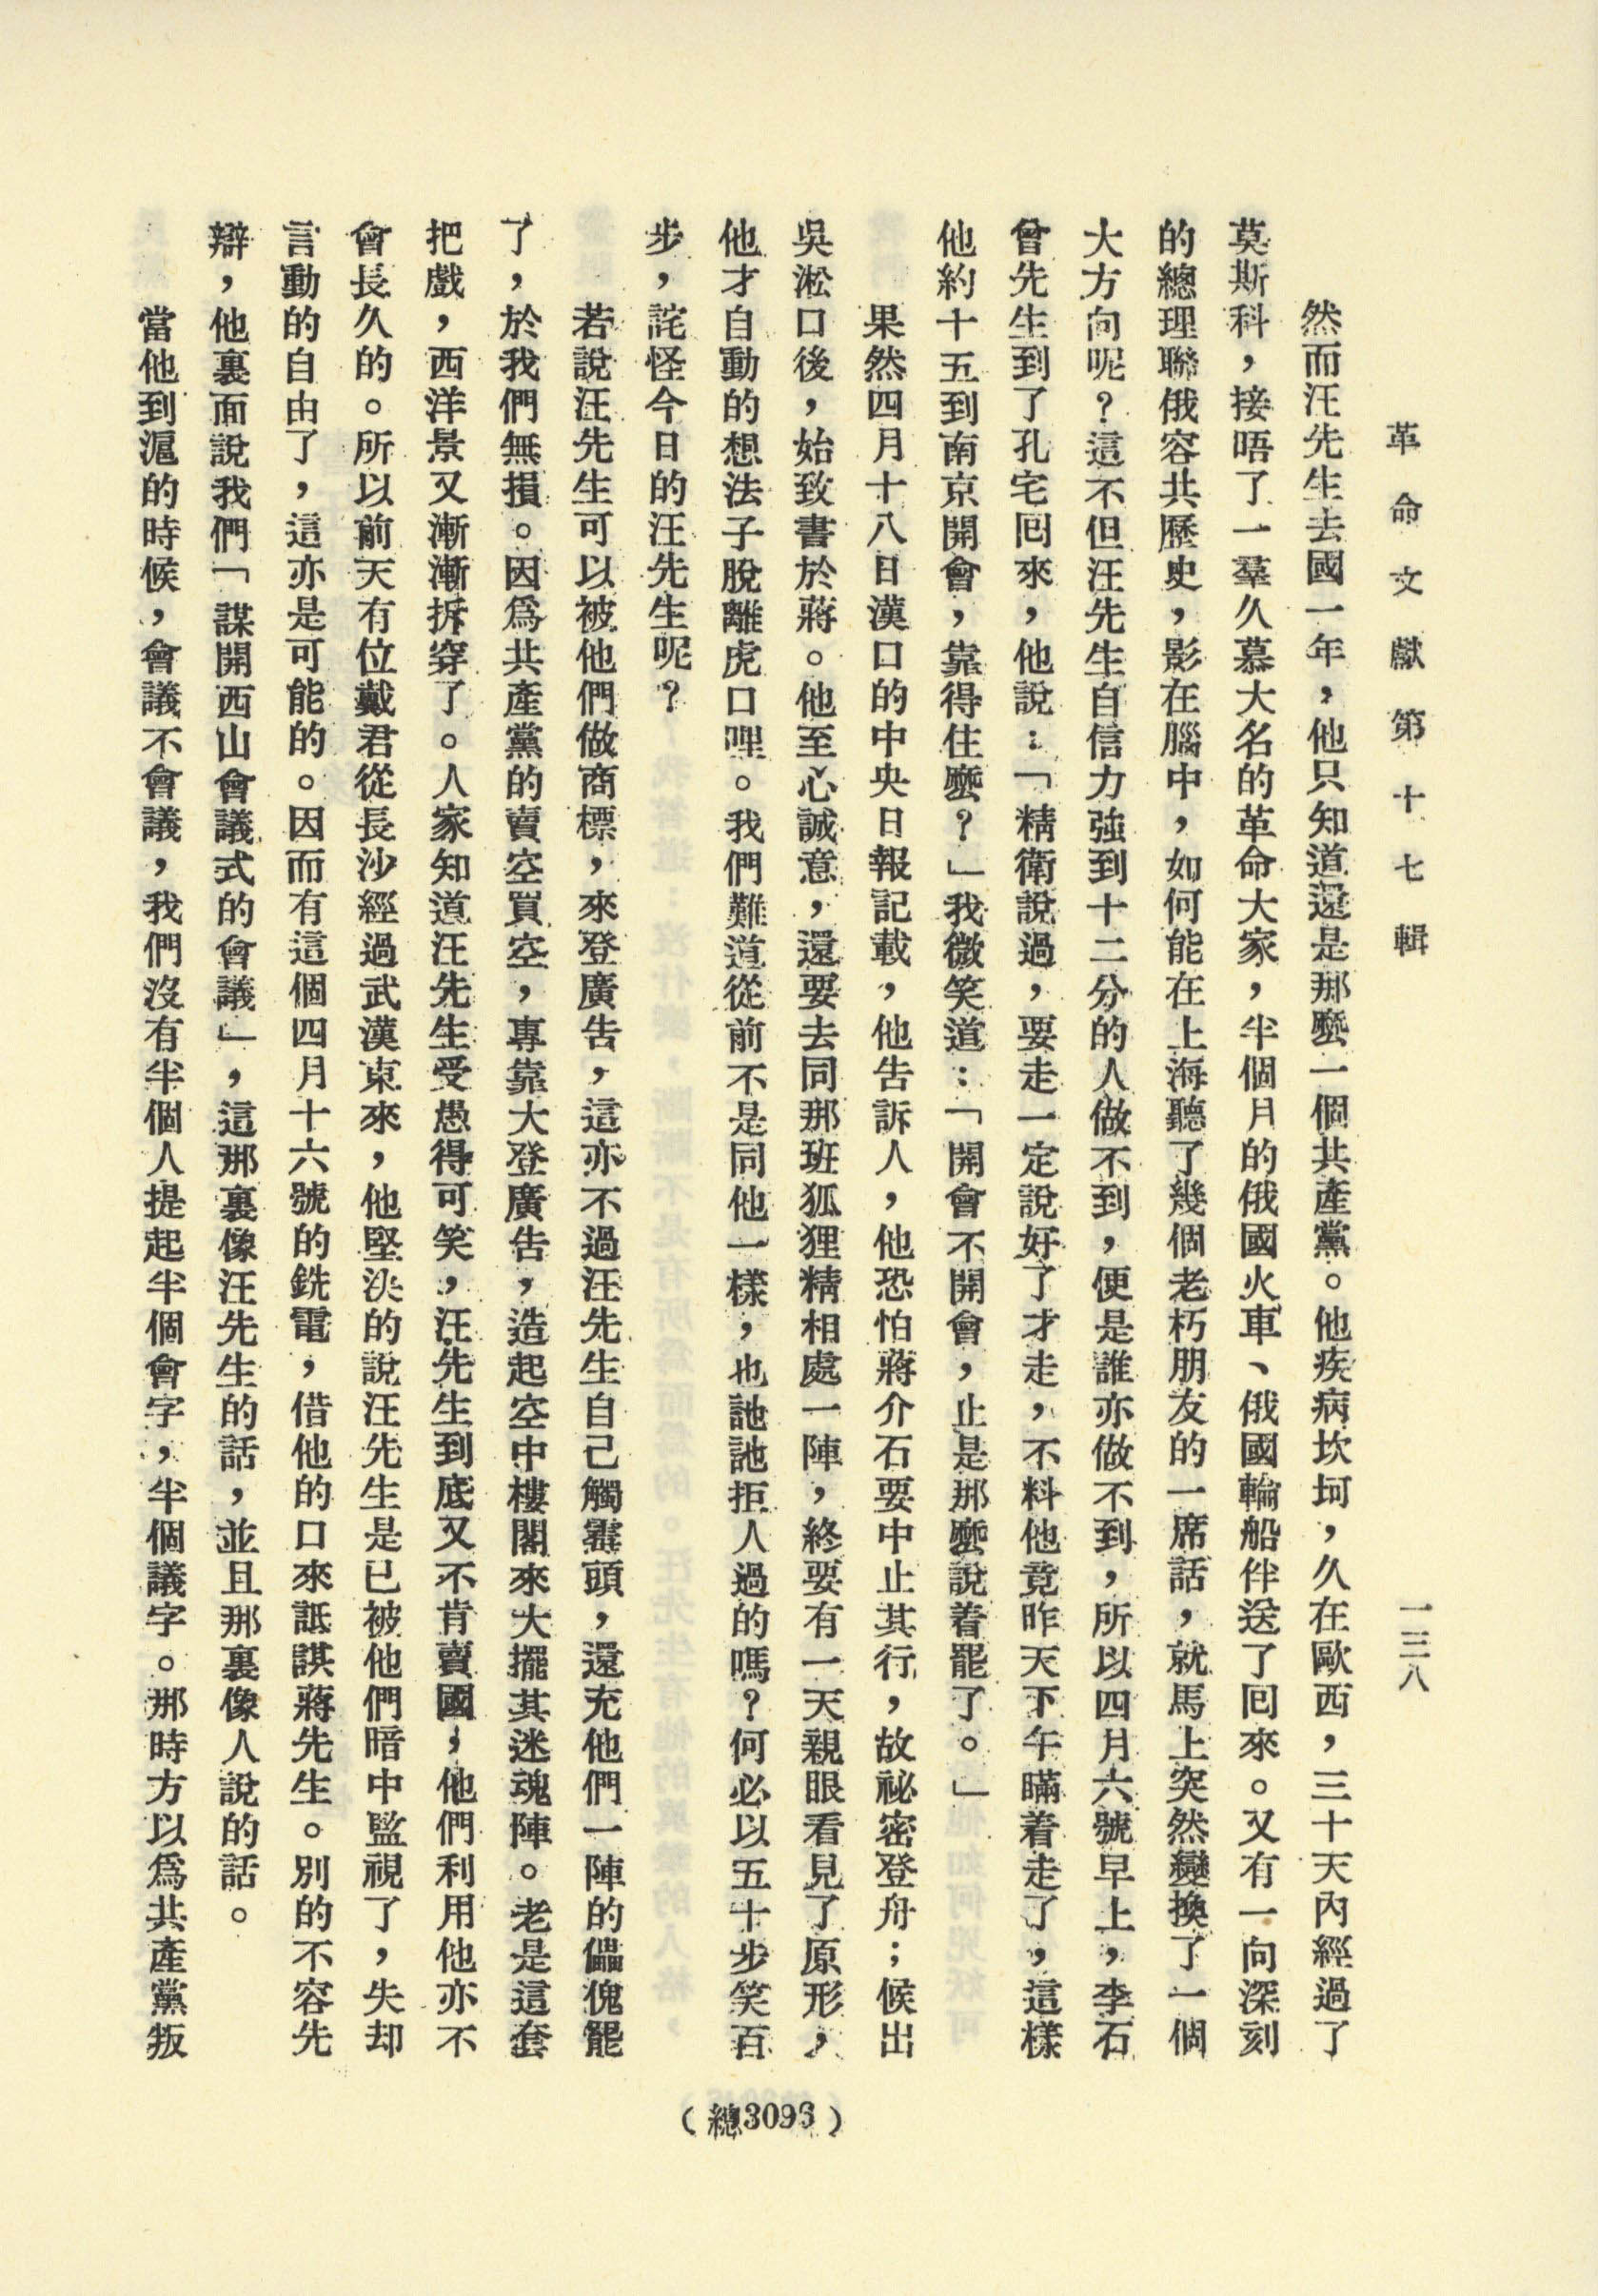 革命文獻第十七輯
一三八
然而汪先生去國一年，他只知道還是那麼一個共產黨。他疾病坎坷，久在歐西，三十天內經過了
莫斯科，接晤了一羣久慕大名的革命大家，半個月的俄國火車、俄國輪船伴送了回來。又有一向深刻
的總理聯俄容共歷史，影在腦中，如何能在上海聽了幾個老朽朋友的一席話，就馬上突然變換了一個
大方向呢？這不但汪先生自信力強到十二分的人做不到，便是誰亦做不到，所以四月六號早上，李石
曾先生到了孔宅回來，他說：「精衛說過，要走一定說好了才走，不料他竟昨天下午瞞着走了，這樣
他約十五到南京開會，靠得住麼？」我微笑道：「開會不開會，止是那麼說着罷了。」
果然四月十八日漢口的中央日報記載，他告訴人，他恐怕蔣介石要中止其行，故祕密登舟；候出
吳淞口後，始致書於蔣。他至心誠意，還要去同那班狐狸精相處一陣，終要有一天親眼看見了原形，
他才自動的想法子脫離虎口哩。我們難道從前不是同他一樣，也訑訑拒人過的嗎？何必以五十步笑百
步，詫怪今日的汪先生呢？
若說汪先生可以被他們做商標，來登廣告，這亦不過汪先生自己觸霉頭，還充他們一陣的儡傀罷
了，於我們無損。因爲共產黨的賣空買空，專靠大登廣告，造起空中樓閣來大擺其迷魂陣。老是這套
把戲，西洋景又漸漸拆穿了。人家知道汪先生受愚得可笑，汪先生到底又不肯賣國，他們利用他亦不
會長久的。所以前天有位戴君從長沙經過武漢東來，他堅決的說汪先生是已被他們暗中監視了，失却
言動的自由了，這亦是可能的。因而有這個四月十六號的銑電，借他的口來詆諆蔣先生。別的不容先
辯，他裏面說我們「謀開西山會議式的會議」，這那裏像汪先生的話，並且那裏像人說的話。
當他到滬的時候，會議不會議，我們沒有半個人提起半個會字，半個議字。那時方以爲共產黨叛
（總3093）